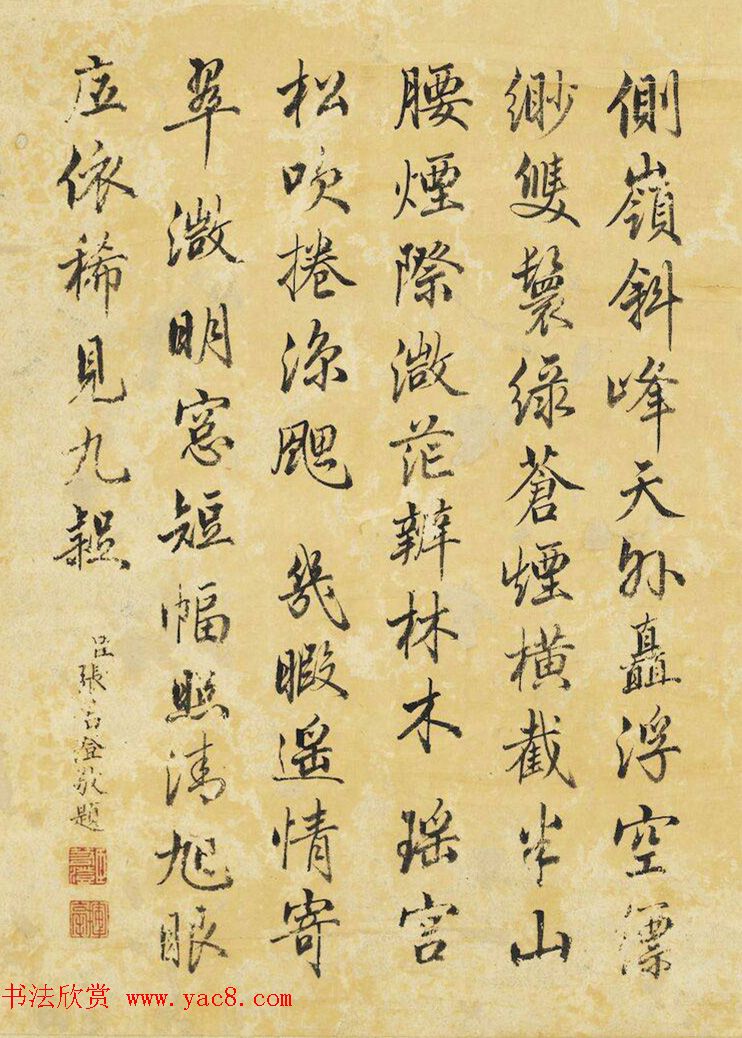 側嶺斜峰天外矗浮空縹
緲雙鬟綠蒼煙橫截半山
腰煙際微茫辨林木瑤宮
松吹捲涼颸幾暇遥情寄
翠微明窓短幅照清旭眼
底依稀見九
臣張若澄敬題
书法欣赏 www.yac8.com